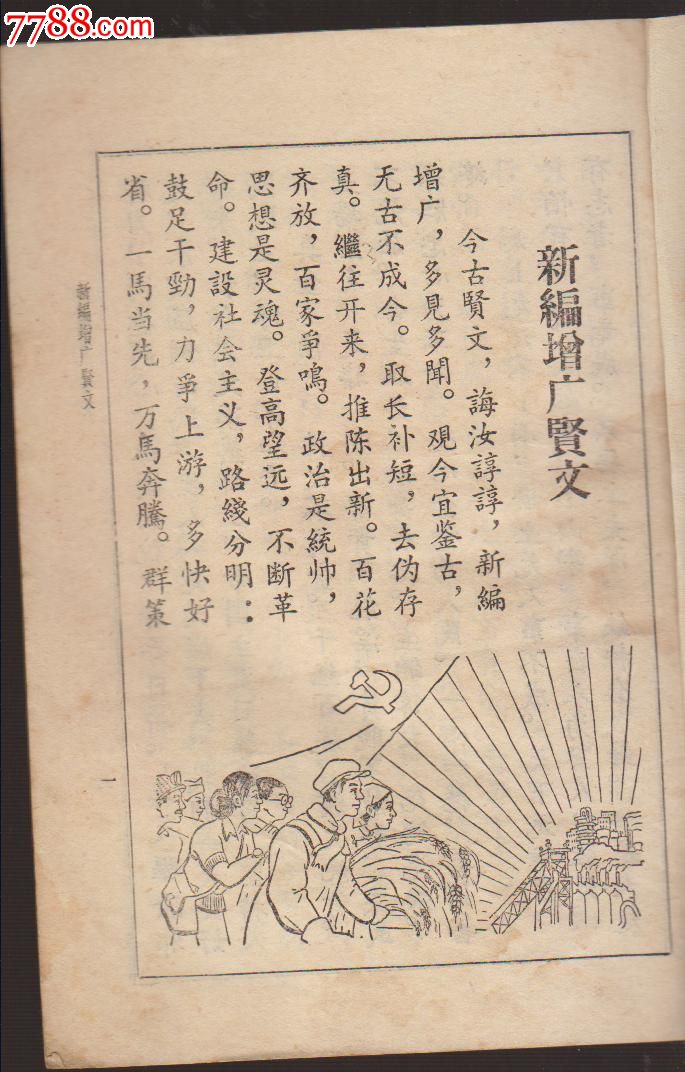 7788.com
新編增广賢文
今古賢文，誨汝諄諄，新編
增广，多見多聞。观今宜鉴古，
无古不成今。取长补短，去伪存
真。繼往开来，推陈出新。百花
齐放，百家爭鳴。政治是統帅，
思想是灵魂。登高望远，不断革
命。建設社会主义，路綫分明：
鼓足干勁，力爭上游，多快好
省。一馬当先，万馬奔騰。群策
新編增广賢文
一